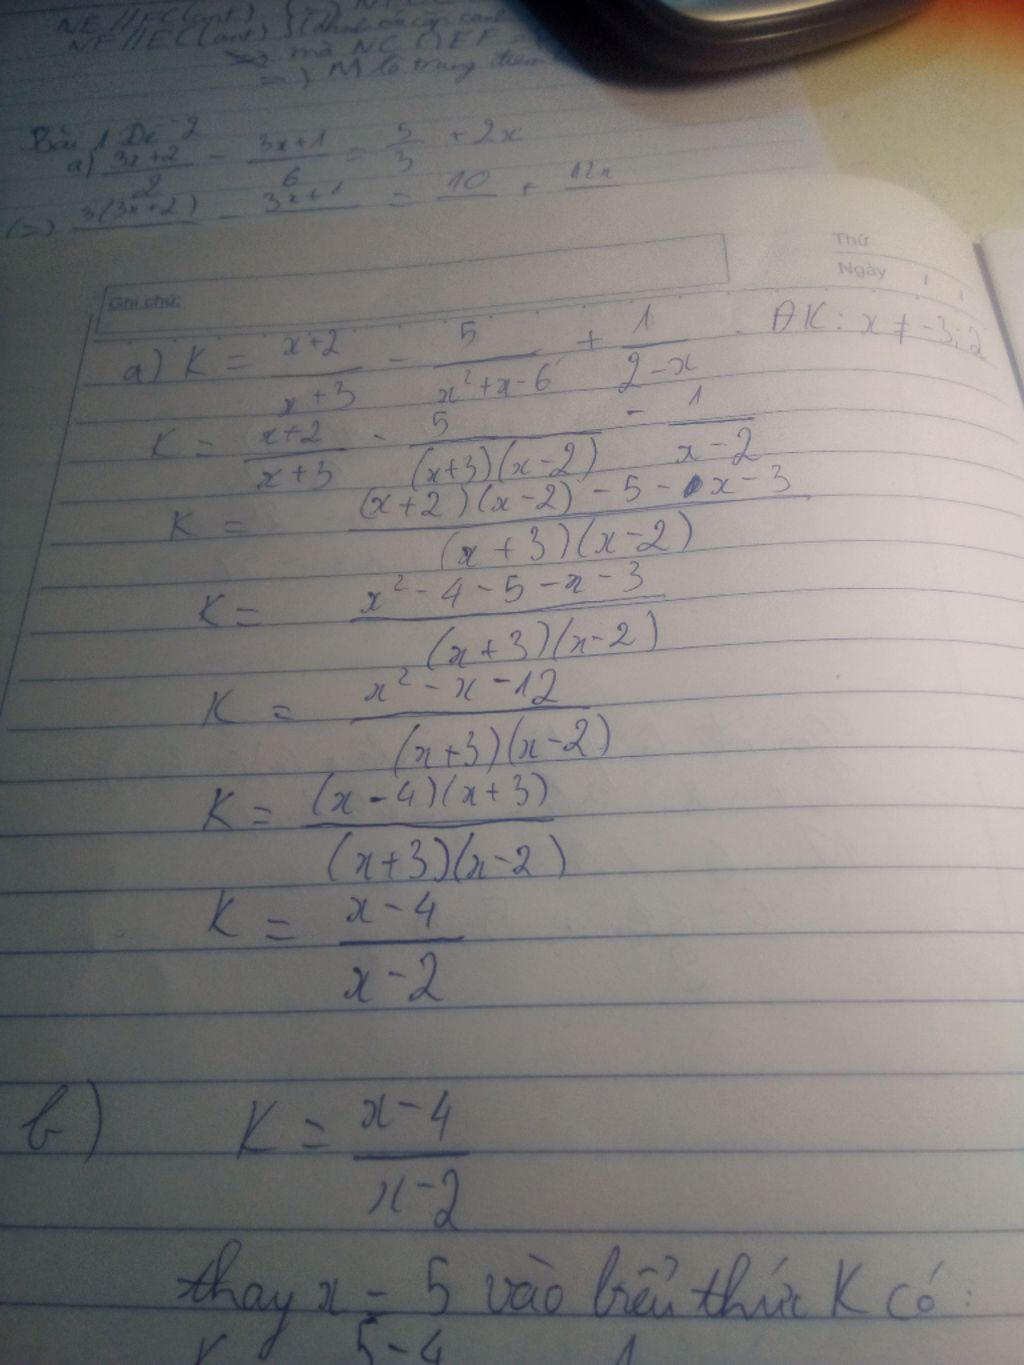 NE // FC (cmt)
NF // EC (cmt)
mà NC ∩ EF =
=) M là trung điểm
Bài 1 Đề 2
a) (3x+2)/2 - (3x+1)/6 = 5/3 + 2x
(=) 3(3x+2) - 3x+1 = 10 + 12x
Thứ
Ngày / /
Ghi chú:
a) K = (x+2)/(x+3) - 5/(x²+x-6) + 1/(2-x) . ĐK: x ≠ -3; 2
K = (x+2)/(x+3) - 5/((x+3)(x-2)) - 1/(x-2)
K = ((x+2)(x-2) - 5 - x - 3)/((x+3)(x-2))
K = (x² - 4 - 5 - x - 3)/((x+3)(x-2))
K = (x² - x - 12)/((x+3)(x-2))
K = ((x-4)(x+3))/((x+3)(x-2))
K = (x-4)/(x-2)
b) K = (x-4)/(x-2)
thay x = 5 vào biểu thức K có:
K 5-4 1